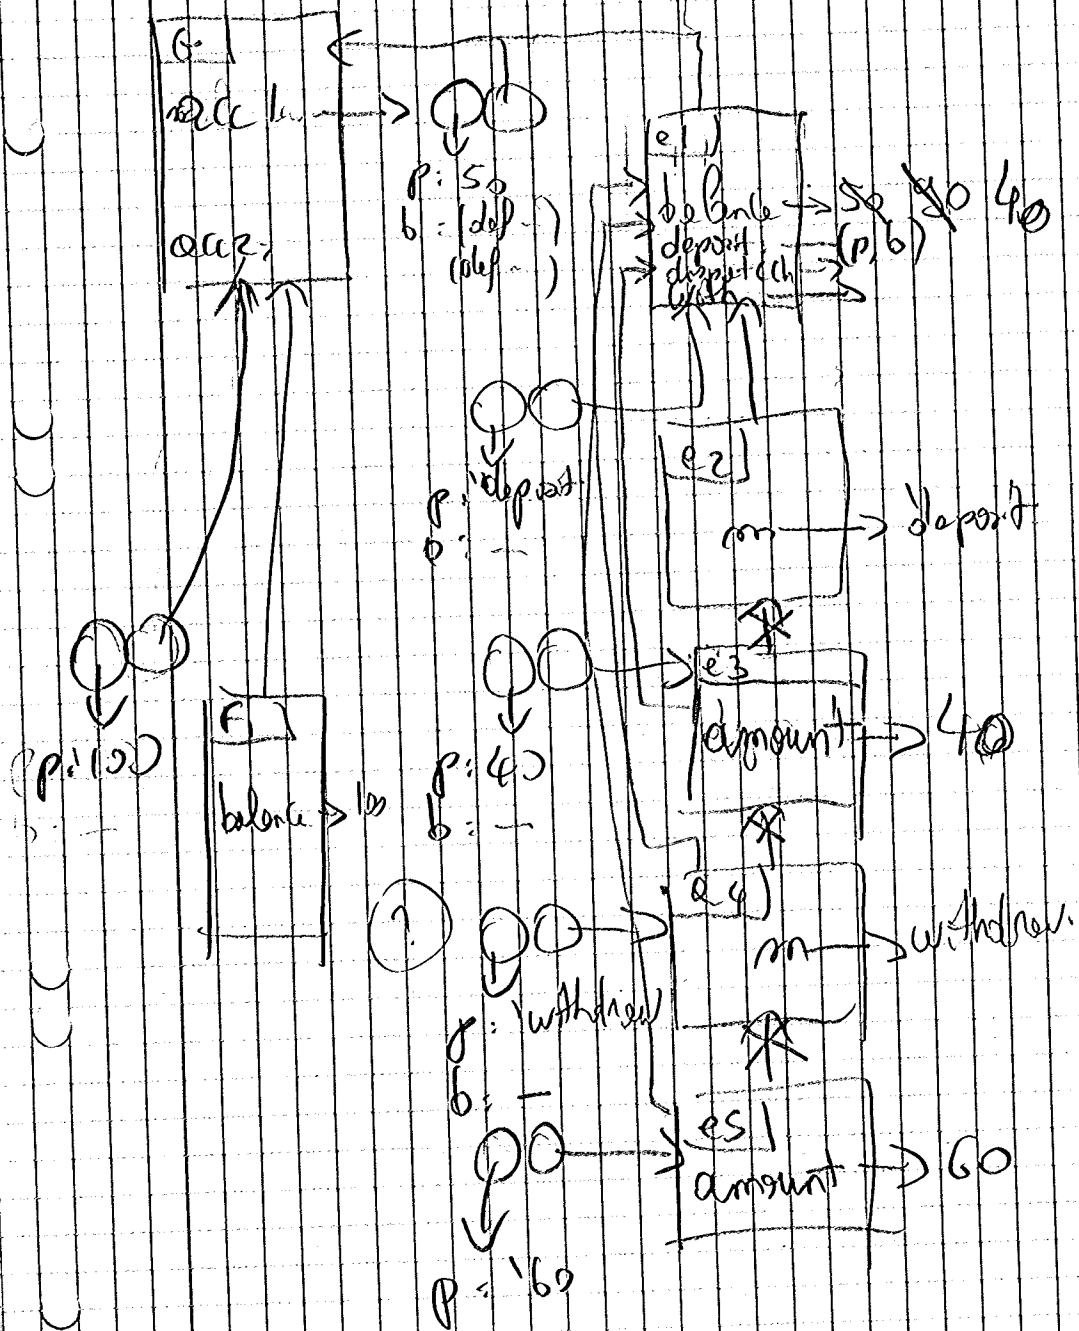 G
acc
p: 50
b: (def -- )
(def -- )
acc2
e1
balance → 50 90 40
deposit (p, b)
dispatch
with
e2
m → 'deposit
p: 'deposit
b: --
e3
amount → 40
p: 40
b: --
p: 100
: --
F1
balance → 100
?
e4
m → withdraw
p: 'withdraw
b: --
e5
amount → 60
p: '60